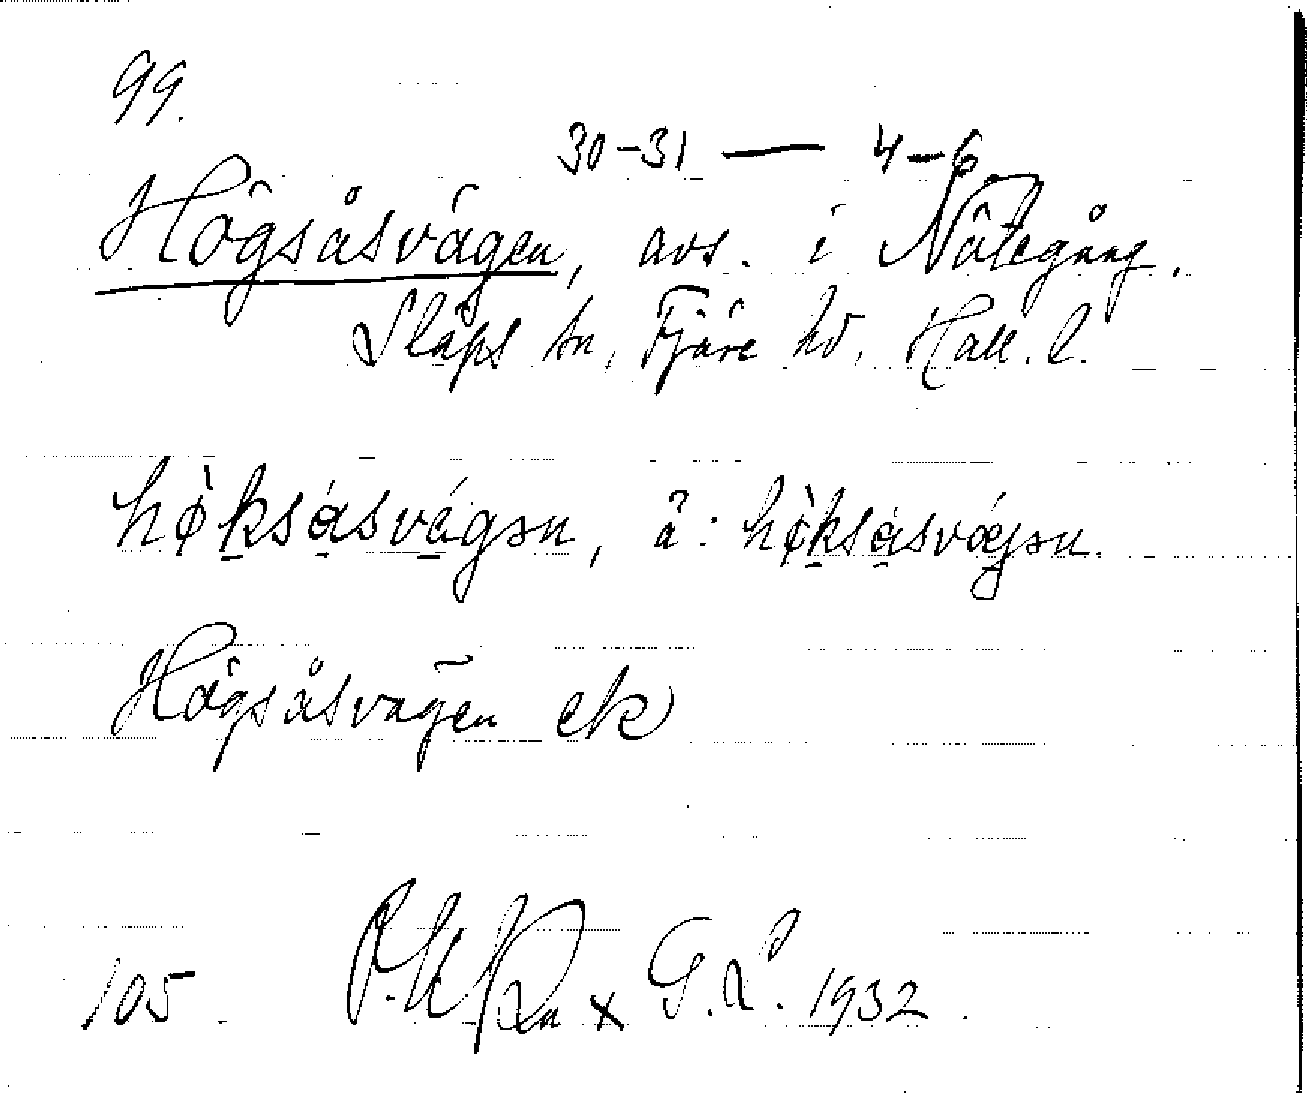 99.
30-31 — 4-6
Högsåsvägen, avs. i Nötegång.
Släps sn, Fjäre hd, Hall. l.
hø̀ksásvágən, ä: hø̀ksásvǽgən.
Högsåsvägen ek
105. G.L. 1932.